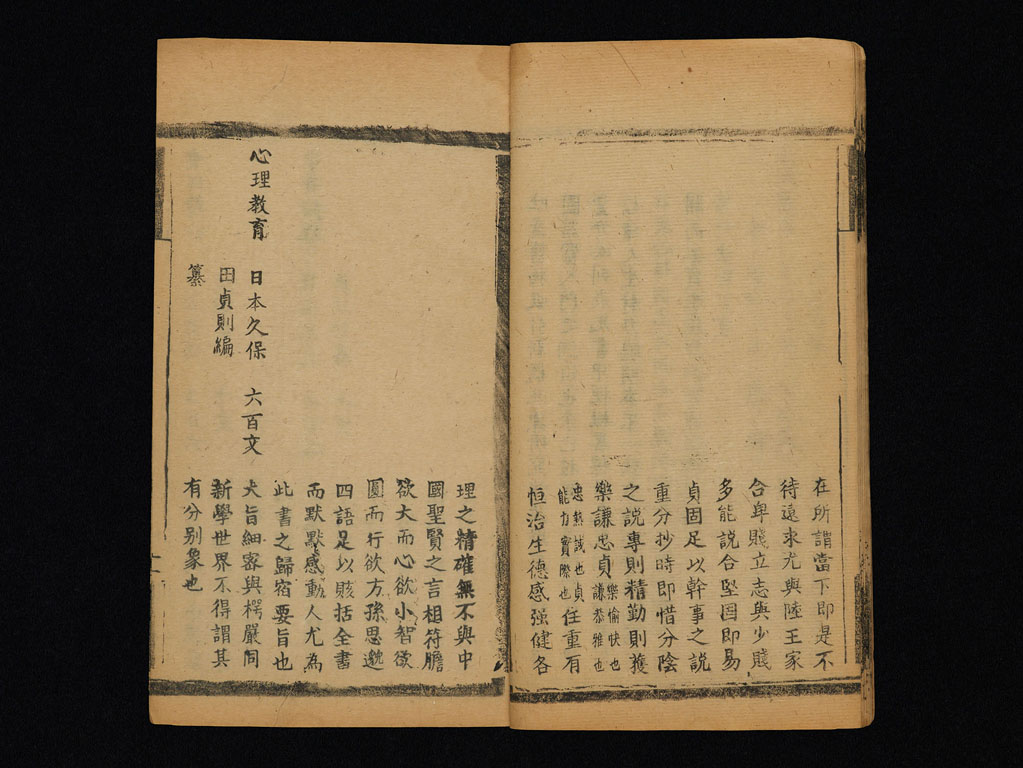 在所謂當下即是不
待遠求尤與陸王家
合卑賤立志與少賤
多能說合堅固即易
貞固足以幹事之說
重分抄時即惜分陰
之說專則精勤則獲
樂謙忠貞
樂愉快也
謙恭雅也
忠熱誠也貞
能力實際也
任重有
恒治生德感强健各
理之精確無不與中
國聖賢之言相符膽
欲大而心欲小智欲
圓而行欲方孫思邈
四語足以賅括全書
而默默感動人尤為
此書之歸宿要旨也
心理教育 日本久保 六百文 大旨細密與楞嚴同
田貞則編 新學世界不得謂其
纂 有分别象也